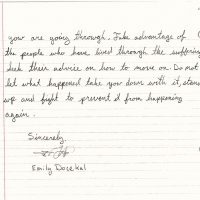 you are going through. Take advantage of
the people who have lived through the suffering
Seek their advice on how to move on. Do not
let what happened take you down with it, stand
up and fight to prevent it from happening
again.
Sincerely,
Emily Docekal